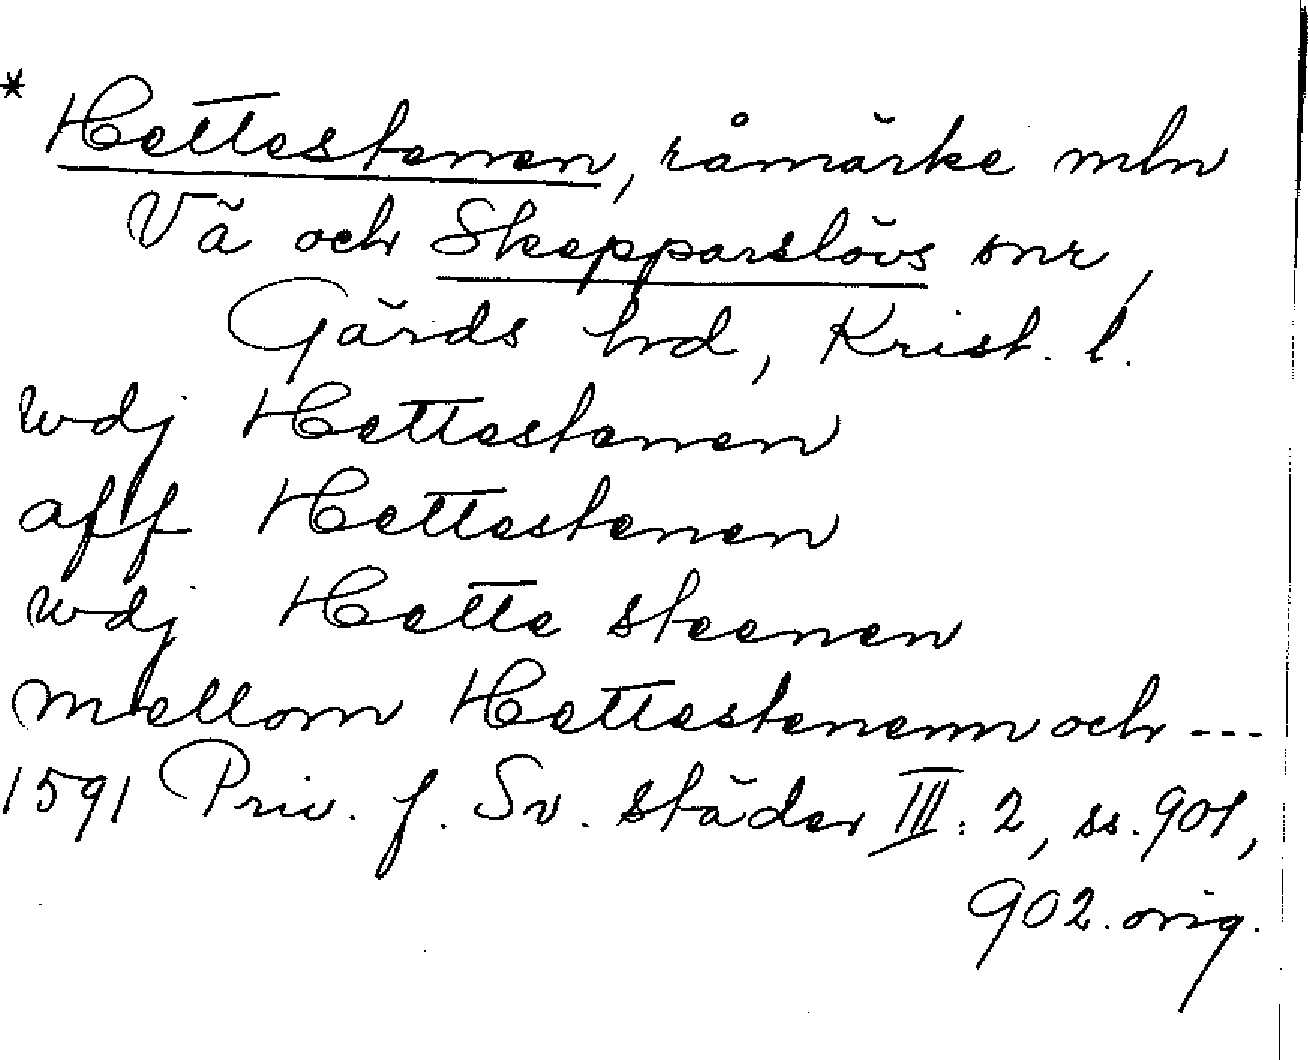 * Hettestenen, råmärke mln
Vä och Skepparslövs snr,
Gärds hrd, Krist. l.
wdj Hettestenen
aff Hettestenen
wdj Hette steenen
mellom Hettestenenn och ---
1591 Priv. f. Sv. städer III: 2, ss. 901,
902. orig.